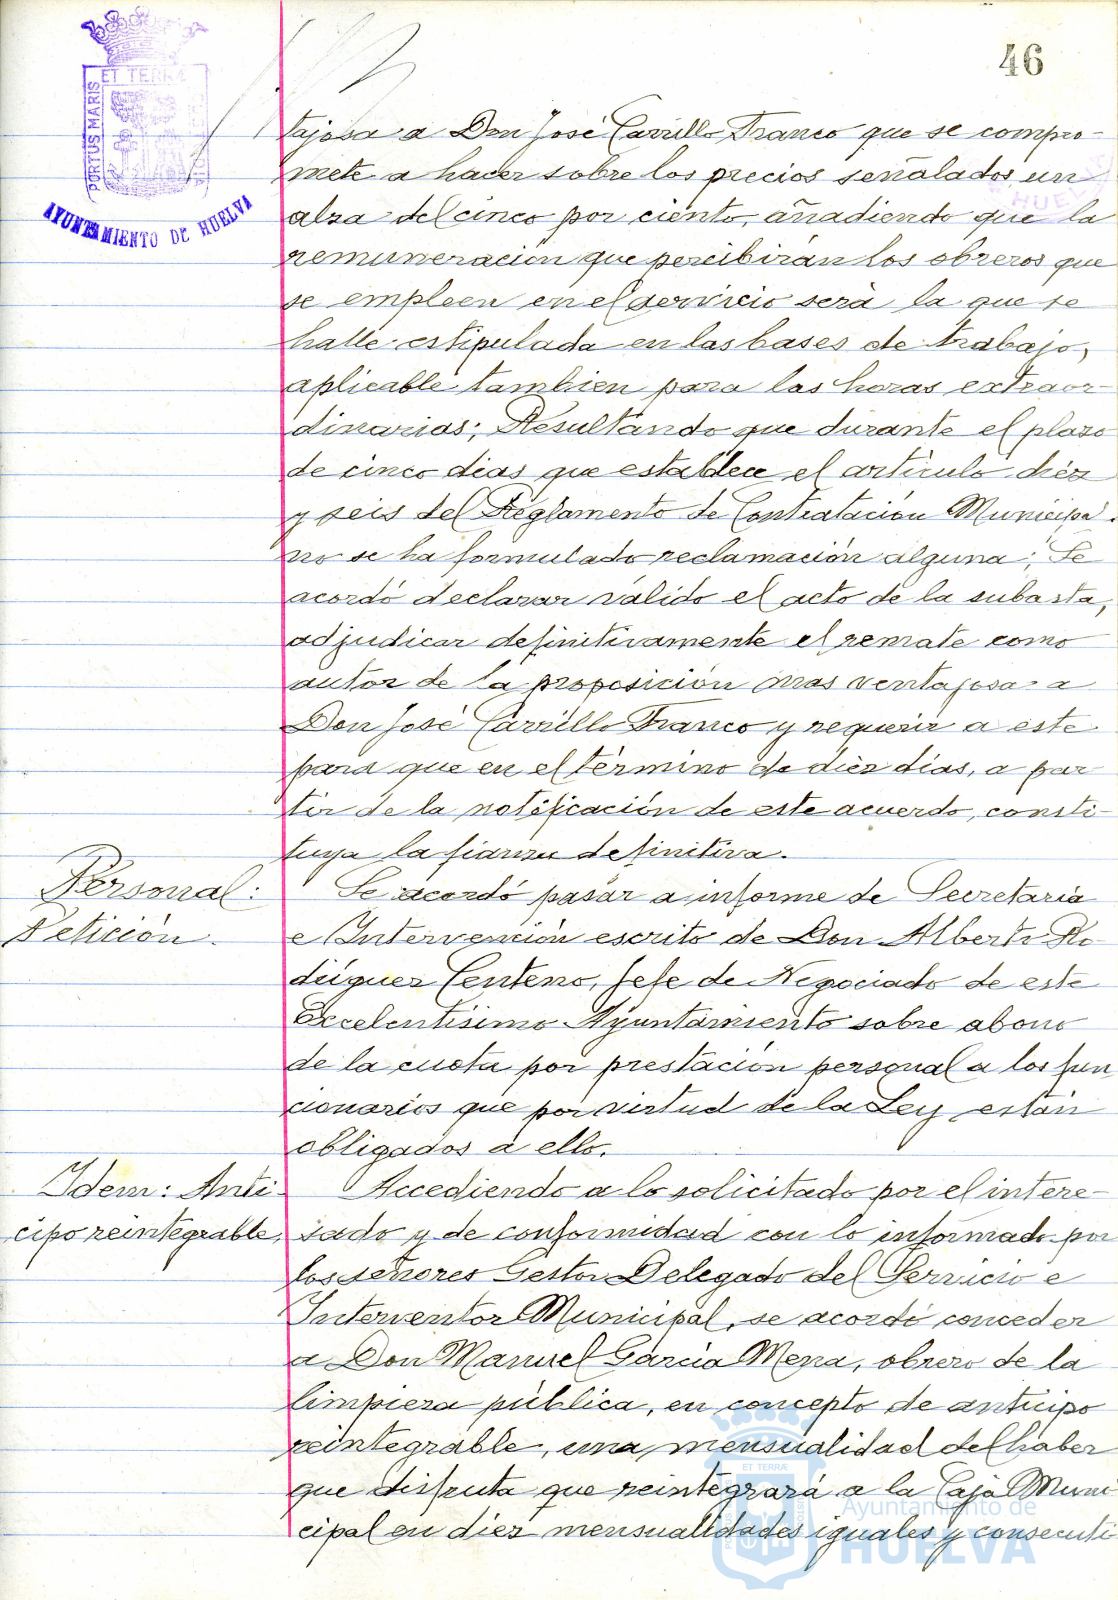 46
PORTUS MARIS
ET TERRÆ
AYUNTAMIENTO DE HUELVA
tajosa a Don José Carrillo Franco que se compro-
mete a hacer sobre los precios señalados un
alza del cinco por ciento, añadiendo que la
remuneración que percibirán los obreros que
se empleen en el servicio será la que se
halle estipulada en las bases de trabajo,
aplicable tambien para las horas extraor-
dinarias; Resultando que durante el plazo
de cinco dias que establece el artículo diéz
y seis del Reglamento de Contratación Municipal
no se ha formulado reclamación alguna; Se
acordó declarar válido el acto de la subasta,
adjudicar definitivamente el remate como
autor de la proposición mas ventajosa a
Don José Carrillo Franco y requerir a este
para que en el término de diéz dias, a par
tir de la notificación de este acuerdo, consti-
tuya la fianza definitiva.
Personal:
Petición.
Se acordó pasar a informe de Secretaría
e Intervención escrito de Don Alberto Ro
dríguez Centeno, Jefe de Negociado de este
Excelentísimo Ayuntamiento sobre abono
de la cuota por prestación personal a los fun
cionarios que por virtud de la Ley están
obligados a ello.
Idem: Anti-
cipo reintegrable.
Accediendo a lo solicitado por el intere-
sado y de conformidad con lo informado por
los señores Gestor Delegado del Servicio e
Interventor Municipal, se acordó conceder
a Don Manuel García Mena, obrero de la
limpieza pública, en concepto de anticipo
reintegrable, una mensualidad del haber
que disfruta que reintegrará a la Caja Muni
cipal en diez mensualidades iguales y consecuti
Ayuntamiento de
HUELVA